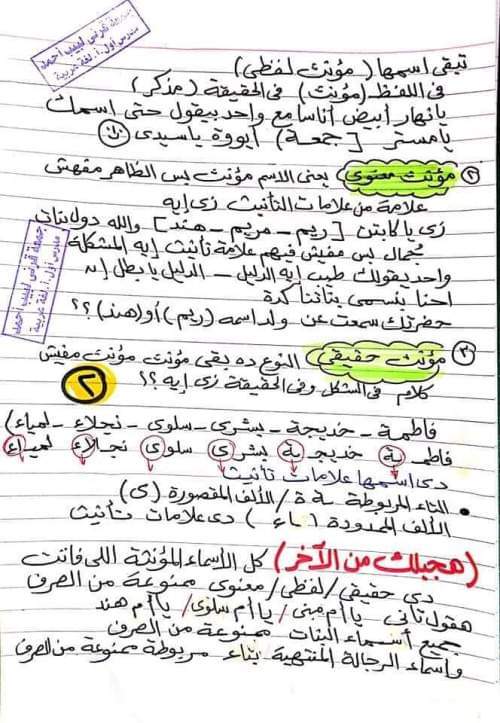 جمعة قرني لبيب أحمد
مدرس أول أ. لغة عربية
تبقى اسمها (مؤنث لفظي)
في اللفظ (مؤنث) في الحقيقة (مذكر)
يانهار أبيض أناسامع واحد بيقول حتى اسمك
يامستر [جمعة] أيووة ياسيدي
② مؤنث معنوي يعني الاسم مؤنث بس الظاهر مفهش
علامة من علامات التأنيث زي إيه
زي يا كابتن [ريم - مريم - هند] والله دول بنات
جُمال بس مفيش فيهم علامة تأنيث إيه المشكلة
واحد يقولك طيب إيه الدليل - الدليل يا بطل إن
احنا بنسمي بناتنا كدة
حضرتك سمعت عن ولد اسمه (ريم) أو (هند) ؟؟
جمعة قرني لبيب أحمد
مدرس أول أ. لغة عربية
③ مؤنث حقيقي النوع ده بقى مؤنث مؤنث مفيش
كلام في الشكل وفي الحقيقة زي إيه ؟؟
٢
فاطمة - خديجة - بشرى - سلوى - نجلاء - لمياء)
فاطمـ ـة خديجـ ـة بشر ى سلو ى نجلا ء لميا ء
دي اسمها علامات تأنيث
• التاء المربوطة ـة ة / الألف المقصورة (ى)
الألف الممدودة (اء) دي علامات تأنيث
(هجبلك من الآخر) كل الأسماء المؤنثة اللي فاتت
دي حقيقي / لفظي / معنوي ممنوعة من الصرف
هقول تاني يا أم منى / يا أم سلوى / يا أم هند
جميع أسماء البنات ممنوعة من الصرف
وأسماء الرجالة المنتهية بتاء مربوطة ممنوعة من الصرف